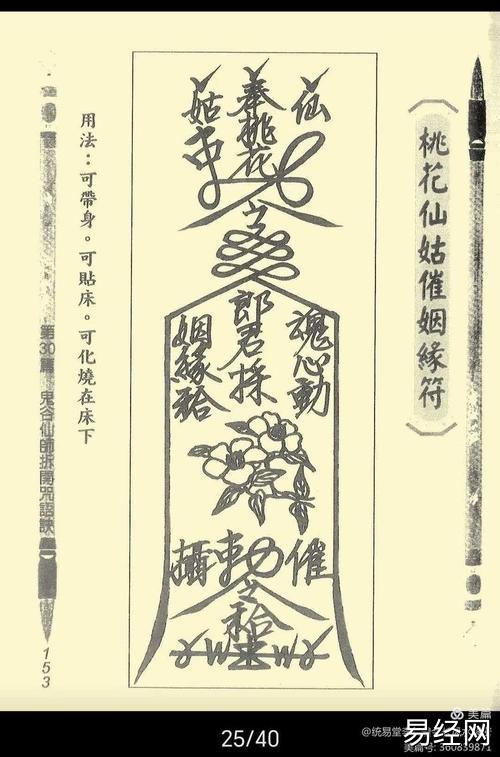 桃花仙姑催姻緣符
仙
奉桃花
姑
令
魂心動
郎君採
姻緣
催
攝
令
用法：可帶身。可貼床。可化燒在床下
第30篇 鬼谷仙師拆開咒語訣
153
美篇
易经网
美篇号: 360839871
25/40